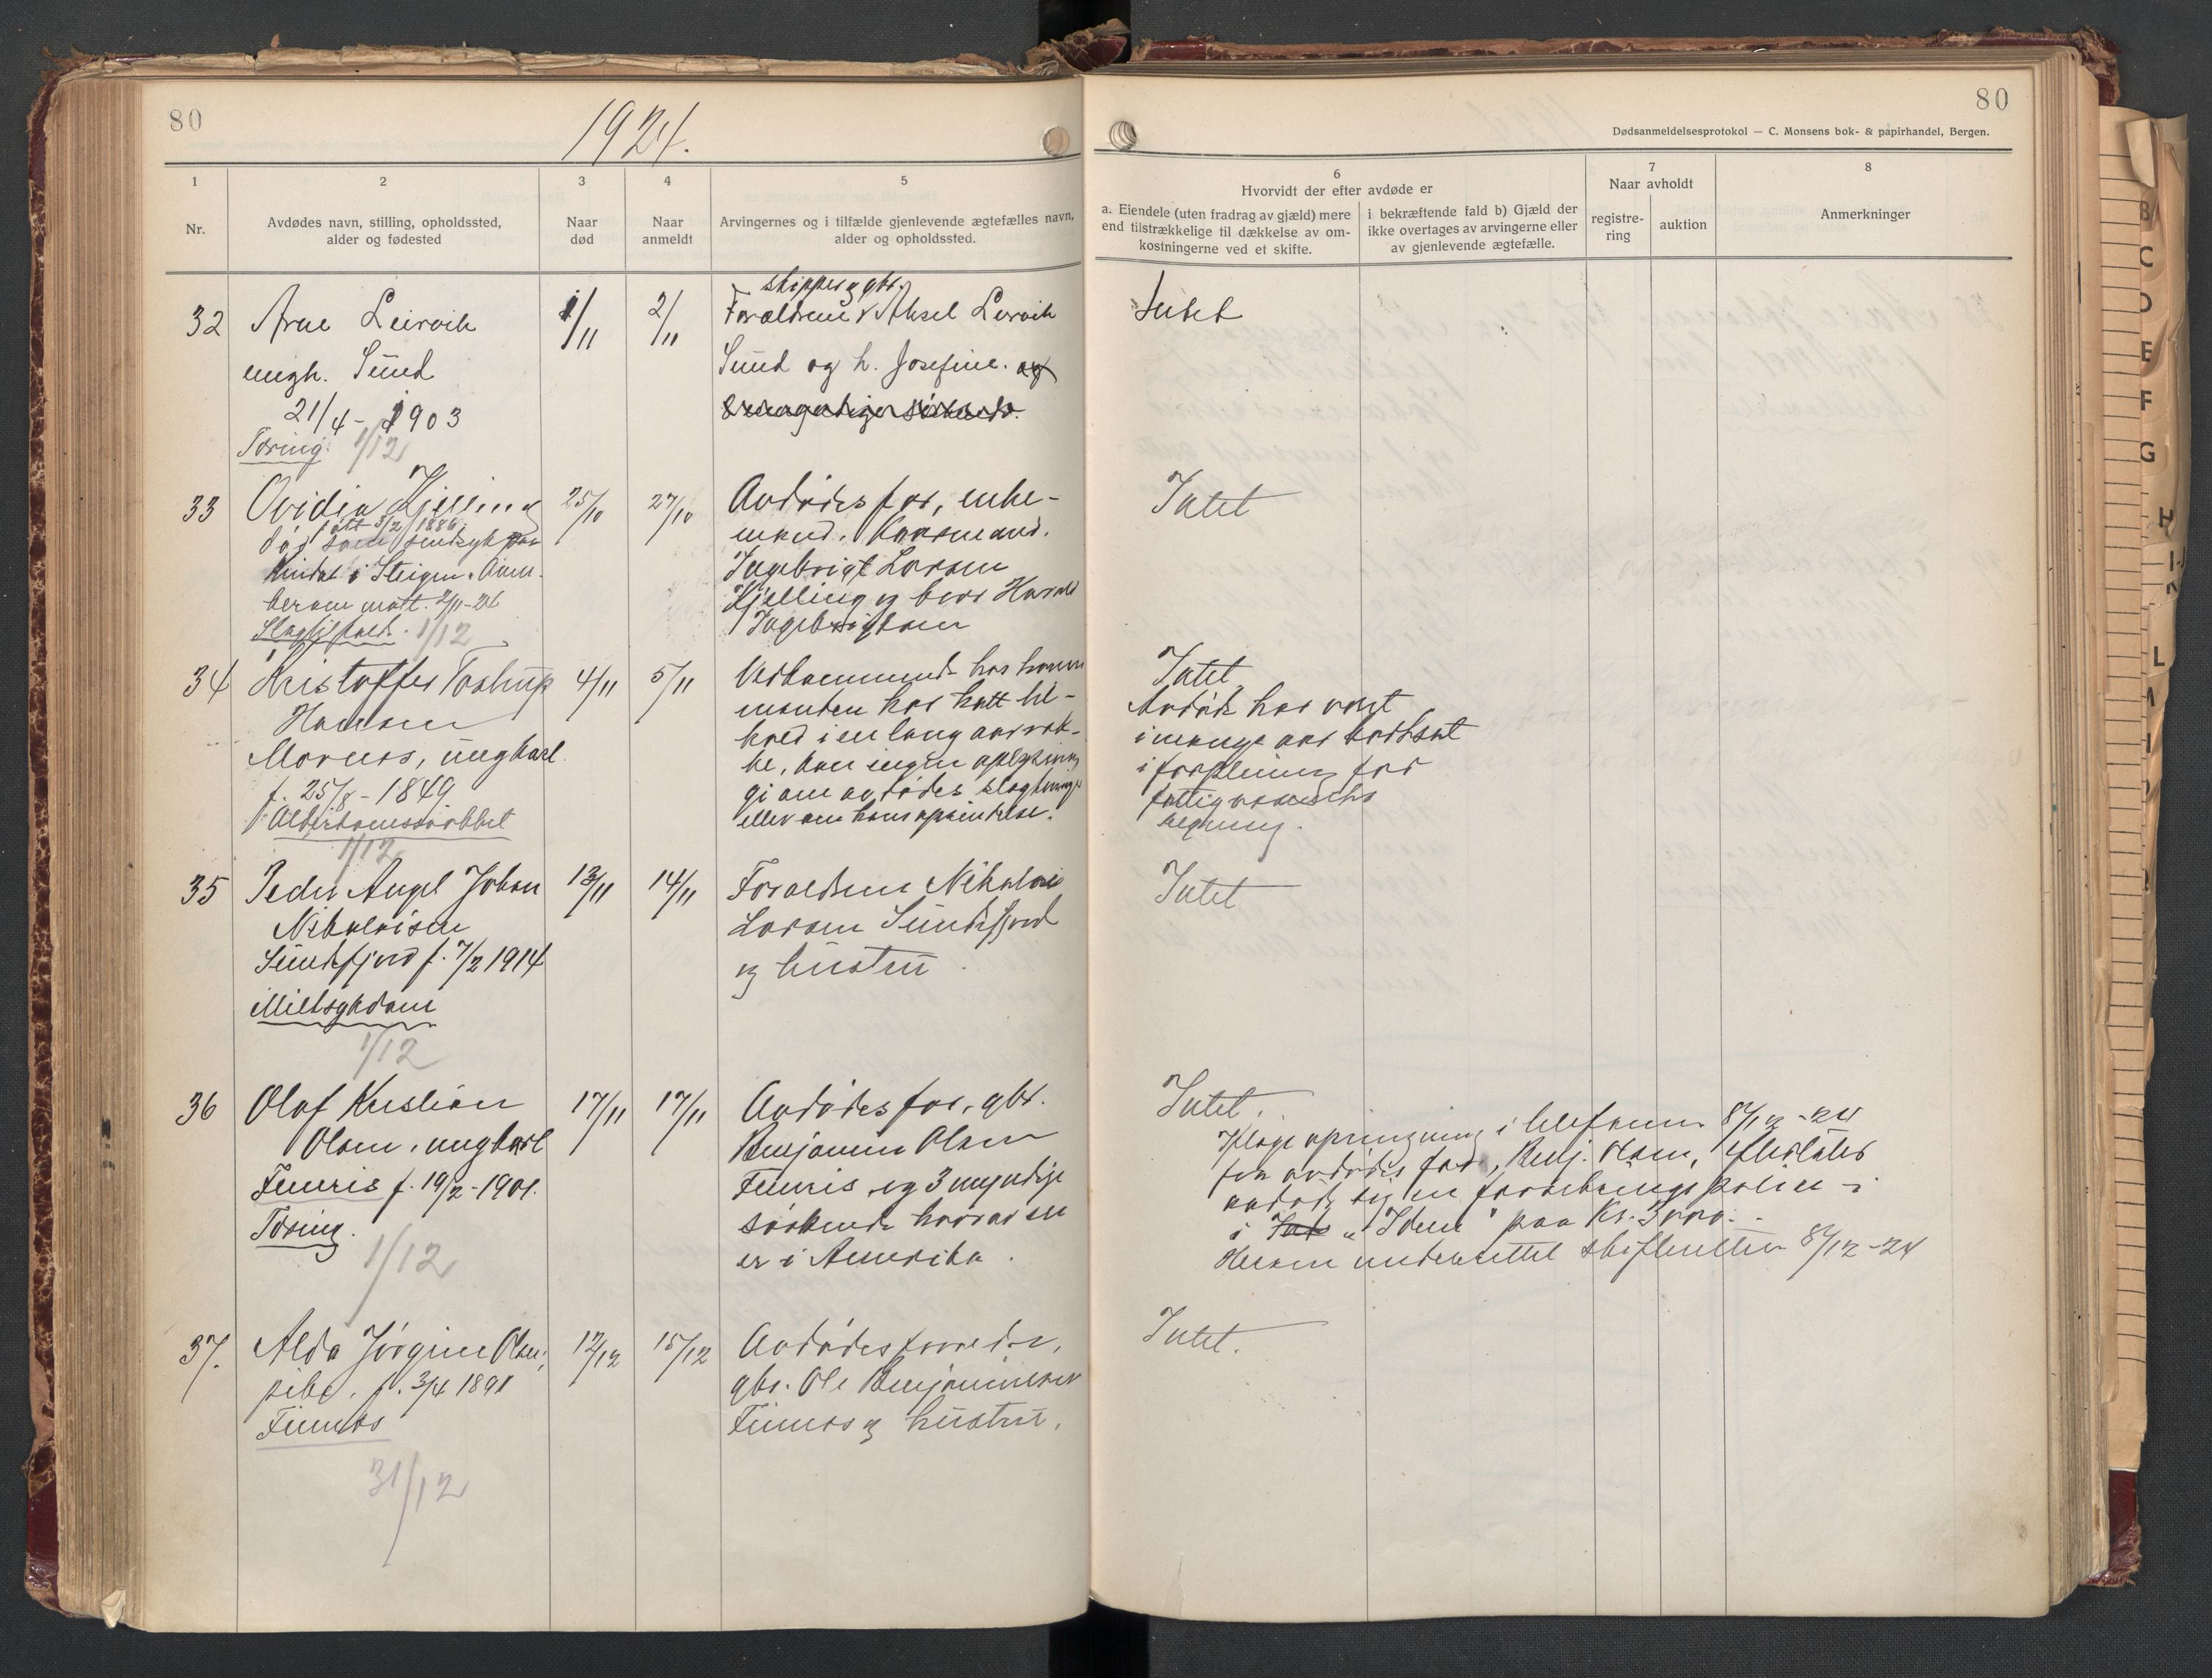 80
1924.
80
Dødsanmeldelsesprotokol — C. Monsens bok- & papirhandel, Bergen.
1
Nr.
2
Avdødes navn, stilling, opholdssted,
alder og fødested
3
Naar
død
4
Naar
anmeldt
5
Arvingernes og i tilfælde gjenlevende ægtefælles navn,
alder og opholdssted.
6
Hvorvidt der efter avdøde er
a. Eiendele (uten fradrag av gjæld) mere
end tilstrækkelige til dækkelse av om-
kostningerne ved et skifte.
i bekræftende fald b) Gjæld der
ikke overtages av arvingerne eller
av gjenlevende ægtefælle.
7
Naar avholdt
registre-
ring
auktion
8
Anmerkninger
32
Arne Leirvik
ungk. Sund
21/4 - 1903
Tæring. 1/12
1/11
2/11
skipper og gbr.
Forældrene Aksel Leirvik
Sund og h. Josefine. og
Intet
33
Ovidia Kjelling
født 3/2 1886.
død som sindsyk paa
i Steigen. Anm.
mott. 2/11-24
Slagtilfæld. 1/12
25/10
27/10
Avdødes far, enke-
mand. Kaarmand.
Ingebrigt Larsen
Kjelling og bror Harald
Ingebrigtsen
Intet
34
Kristoffer Tostrup
Hansen
Mornes, ungkarl.
f. 25/8 - 1849
Alderdomssvækket
1/12
4/11
5/11
Vedkommende hos hvem
manden har hatt til-
hold i en lang aarræk-
ke, kan ingen oplysning
gi om avdødes slægtninge
eller om hans oprindelse.
Intet
Avdøde har vært
i mange aar bortsat
i forpleining for
fattigvæsenets
regning.
35
Peder Angel Johan
Nikolaisen
Sundsfjord f. 7/2 1914
Miltsykdom
1/12
13/11
14/11
Forældrene Nikolai
Larsen Sundsfjord
og hustru.
Intet
36
Olaf Kristian
Olsen, ungkarl
Finnes f. 19/2-1901.
Tæring.
1/12
17/11
17/11
Avdødes far, gbr.
Benjamin Olsen
Finnes og 3 myndige
søskende hvorav en
er i Amerika.
Intet.
opringning i telefonen 8/12-24
fra avdødes far, Benj. Olsen, efterlater
avdøde sig en forsikringspolice i
i „Idun" paa Kr. 3000.-
Herom underrettet skifteretten 8/12-24
37.
Alda Jørgine Olsen,
pike. f. 3/4 1891
Finnes
31/12
12/12
15/12
Avdødes forældre,
gbr. Ole Benjaminsen
Finnes og hustru.
Intet.
B
C
D
E
F
G
H
L